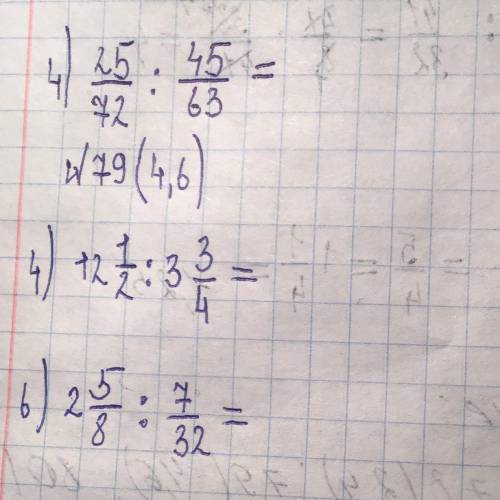 4) 25/72 : 45/63 =
№79 (4,6)
4) 12 1/2 : 3 3/4 =
6) 2 5/8 : 7/32 =